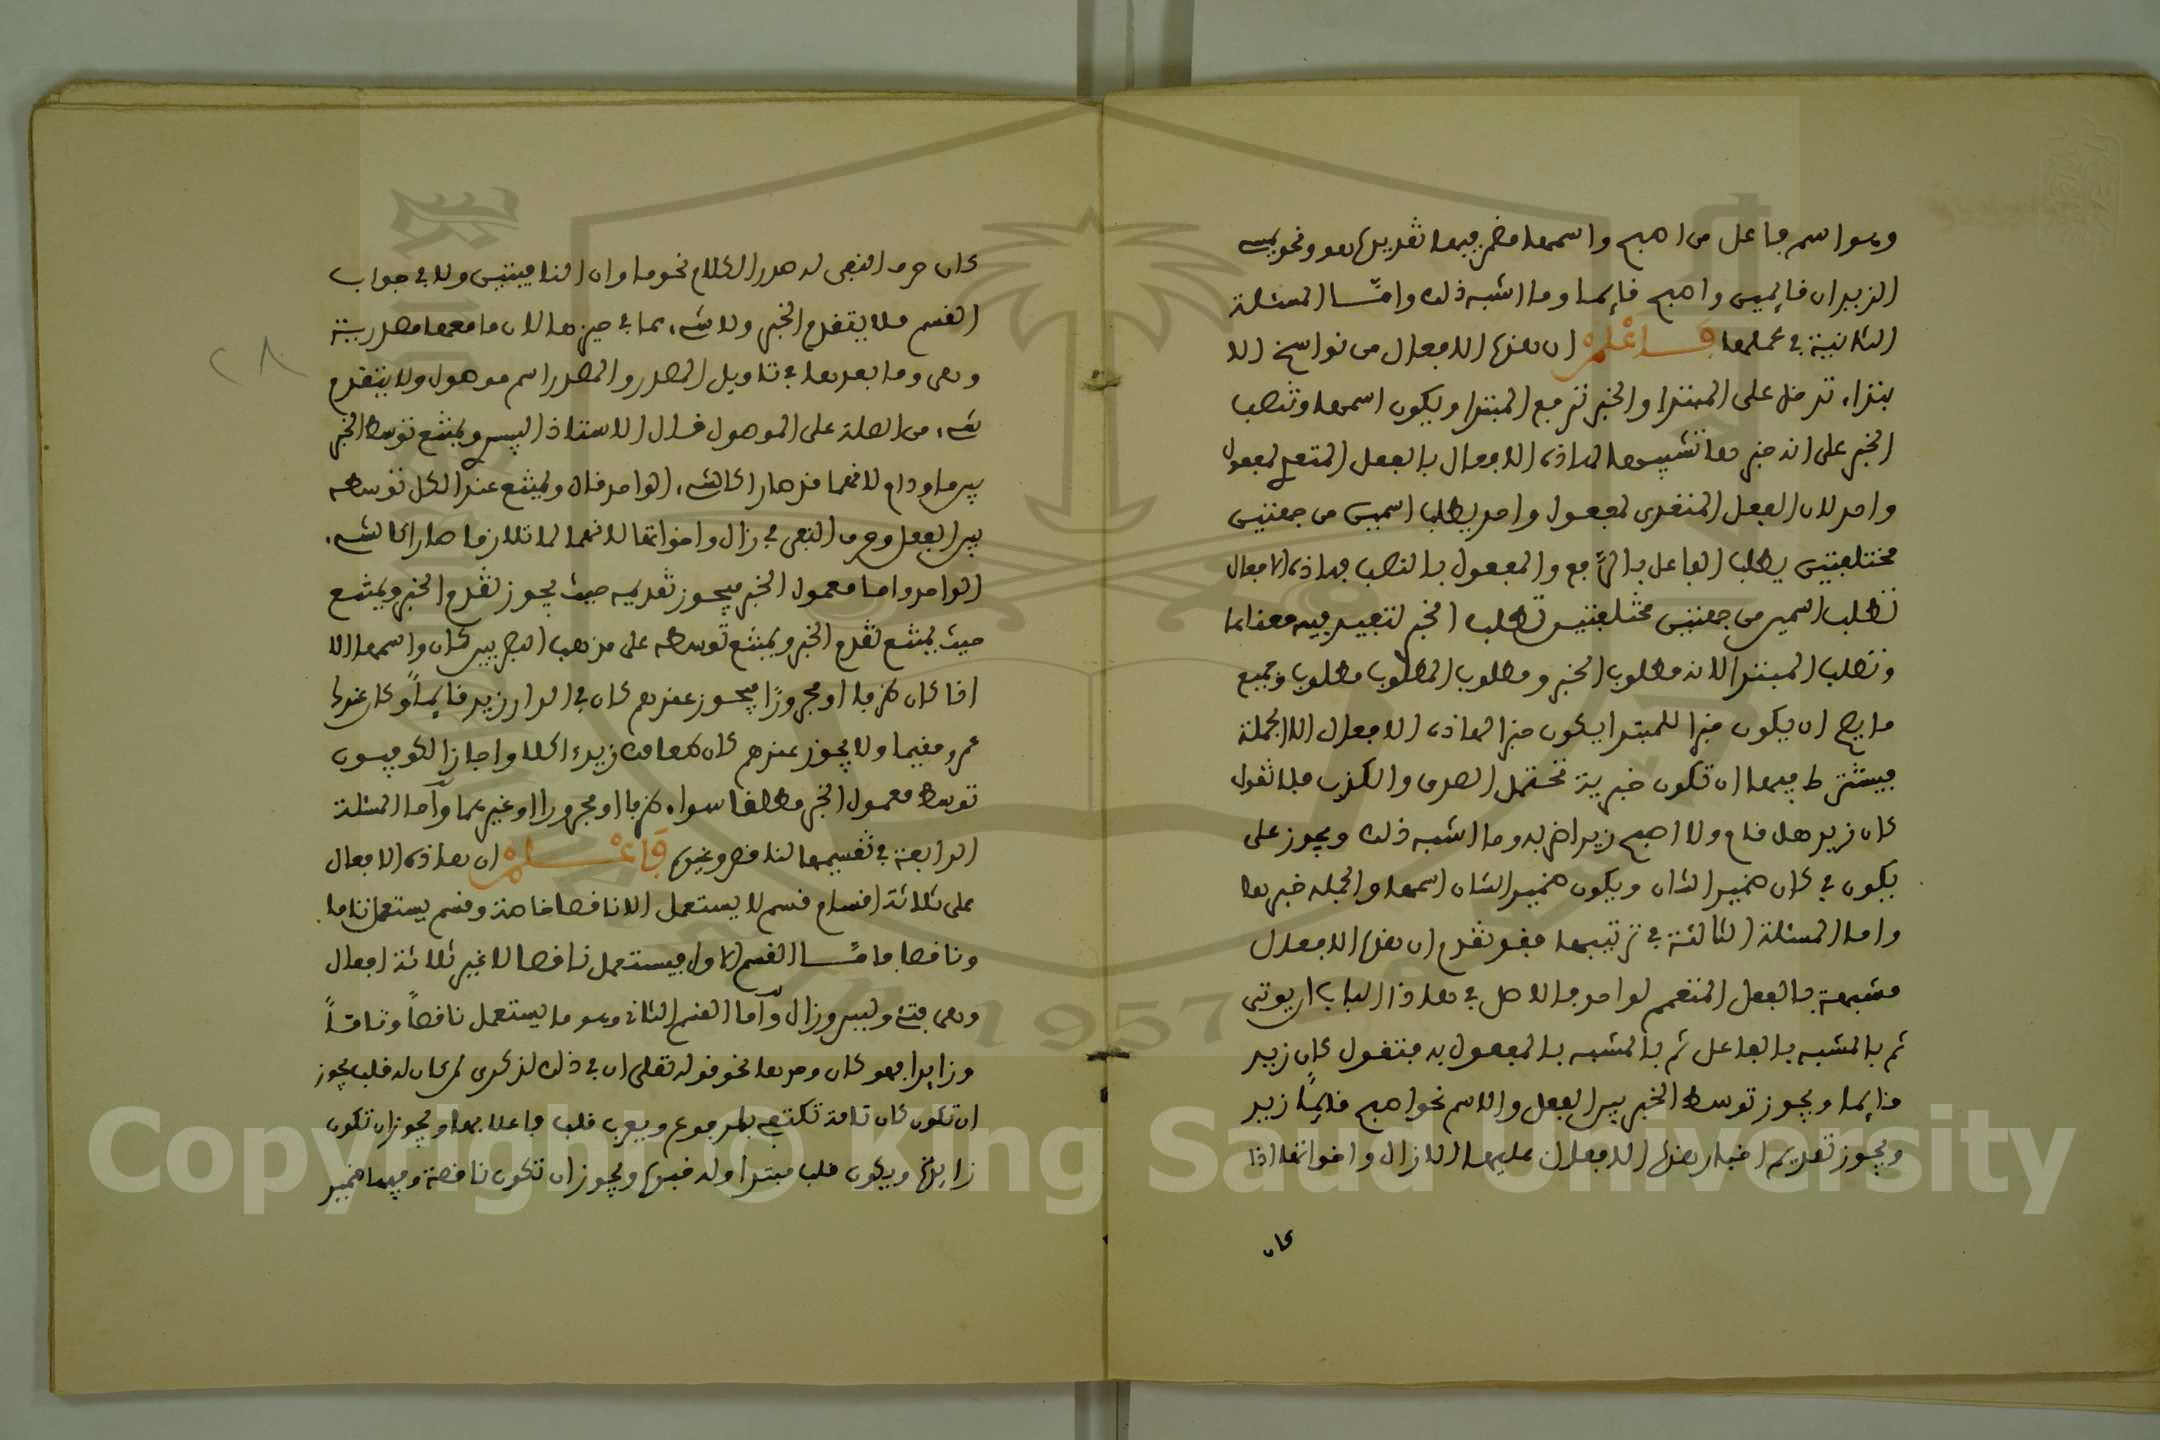 وهو اسم فاعل من اصبح واسمها مضمر فيها تقديره هو ونحو يمسي
الزيدان قايمين واصبح قايما وما اشبه ذلك وامّا المسئلة
الثانية في عملها فاعلم ان هذه الافعال من نواسخ الا
بتداء تدخل على المبتدا والخبر ترفع المبتدا ويكون اسمها وتنصب
الخبر على انه خبرها تشبيها لهاذه الافعال بالفعل المتعدي لمفعول
واحد لان الفعل المتعدى لمفعول واحد يطلب اسمين من جهتين
مختلفتين يطلب الفاعل بالرّفع والمفعول بالنصب فهاذه الافعال
تطلب اسمين من جهتين مختلفتين تطلب الخبر لتفيد فيه معناها
وتطلب المبتدا لانه مطلوب الخبر ومطلوب المطلوب مطلوب وجميع
ما يصح ان يكون خبرا للمبتدا يكون خبرا لهاذه الافعال الا الجملة
فيشترط فيها ان تكون خبرية تحتمل الصدق والكذب فلا تقول
كان زيد هل قام ولا اصبح زيد اضربه وما اشبه ذلك ويجوز على
يكون في كان ضمير الشان ويكون ضمير الشان اسمها والجملة خبرها
واما المسئلة الثالثة في ترتيبها فقد تقدم ان هذه الافعال
مشبهة بالفعل المتعدي لواحد فالاصل في هاذا الباب ان يوتى
ثم بالمشبه بالفاعل ثم بالمشبه بالمفعول به فتقول كان زيد
قايما ويجوز توسط الخبر بين الفعل والاسم نحو اصبح قايمًا زيد
ويجوز تقديم اخبار هذه الافعال عليها الا زال واخواتها اذا
كان
كان حرف النفي له صدر الكلام نحو ما وان النافيتين ولا في جواب
القسم فلا يتقدم الخبر ولا شيء مما في حيزها لان ما معها مصدرية
وهي وما بعدها في تاويل المصدر والمصدر اسم موصول ولا يتقدم
شيء من الصلة على الموصول قال الاستاذ اليسر ويمتنع توسط الخبر
بين ما ودام لانهما قد صارا كالشيء الواحد قال ويمتنع عند الكل توسطه
بين الفعل وحرف النفي في زال واخواتها لانهما لما تلازما صارا كالشيء
الواحد واما معمول الخبر فيجوز تقديمه حيث يجوز تقدم الخبر ويمتنع
حيث يمتنع تقدم الخبر ويمتنع توسطه على مذهب البصريين كان واسمها الا
اذا كان ظرفا او مجرورًا فيجوز عندهم كان في الدار زيد قايمًا وكان عندك
عمرو مقيما ولا يجوز عندهم كان طعامك زيد ءاكلا واجاز الكوفيون
توسط معمول الخبر مطلقا سواء ظرفا او مجرورا او غيرهما وأما المسئلة
الرابعة في تقسيمها لناقص وغيره فاعلم ان هاذه الافعال
على ثلاثة اقسام قسم لا يستعمل الا ناقصا خاصة وقسم يستعمل تاما
وناقصا فامّا القسم الاول فيستعمل ناقصا لا غير ثلاثة افعال
وهي فتئ وليس وزال وأما القسم الثاني وهو ما يستعمل ناقصاً وتاماً
وزايدا فهو كان وحدها نحو قوله تعلى ان في ذلك لذكرى لمن كان له قلب يجوز
ان تكون كان تامة تكتفي بالمرفوع ويعرب قلب فاعلا بها ويجوز ان تكون
زايدة ويكون قلب مبتدا وله خبره ويجوز ان تكون ناقصة وفيها ضمير
٢٨
Copyright © King Saud University
1957